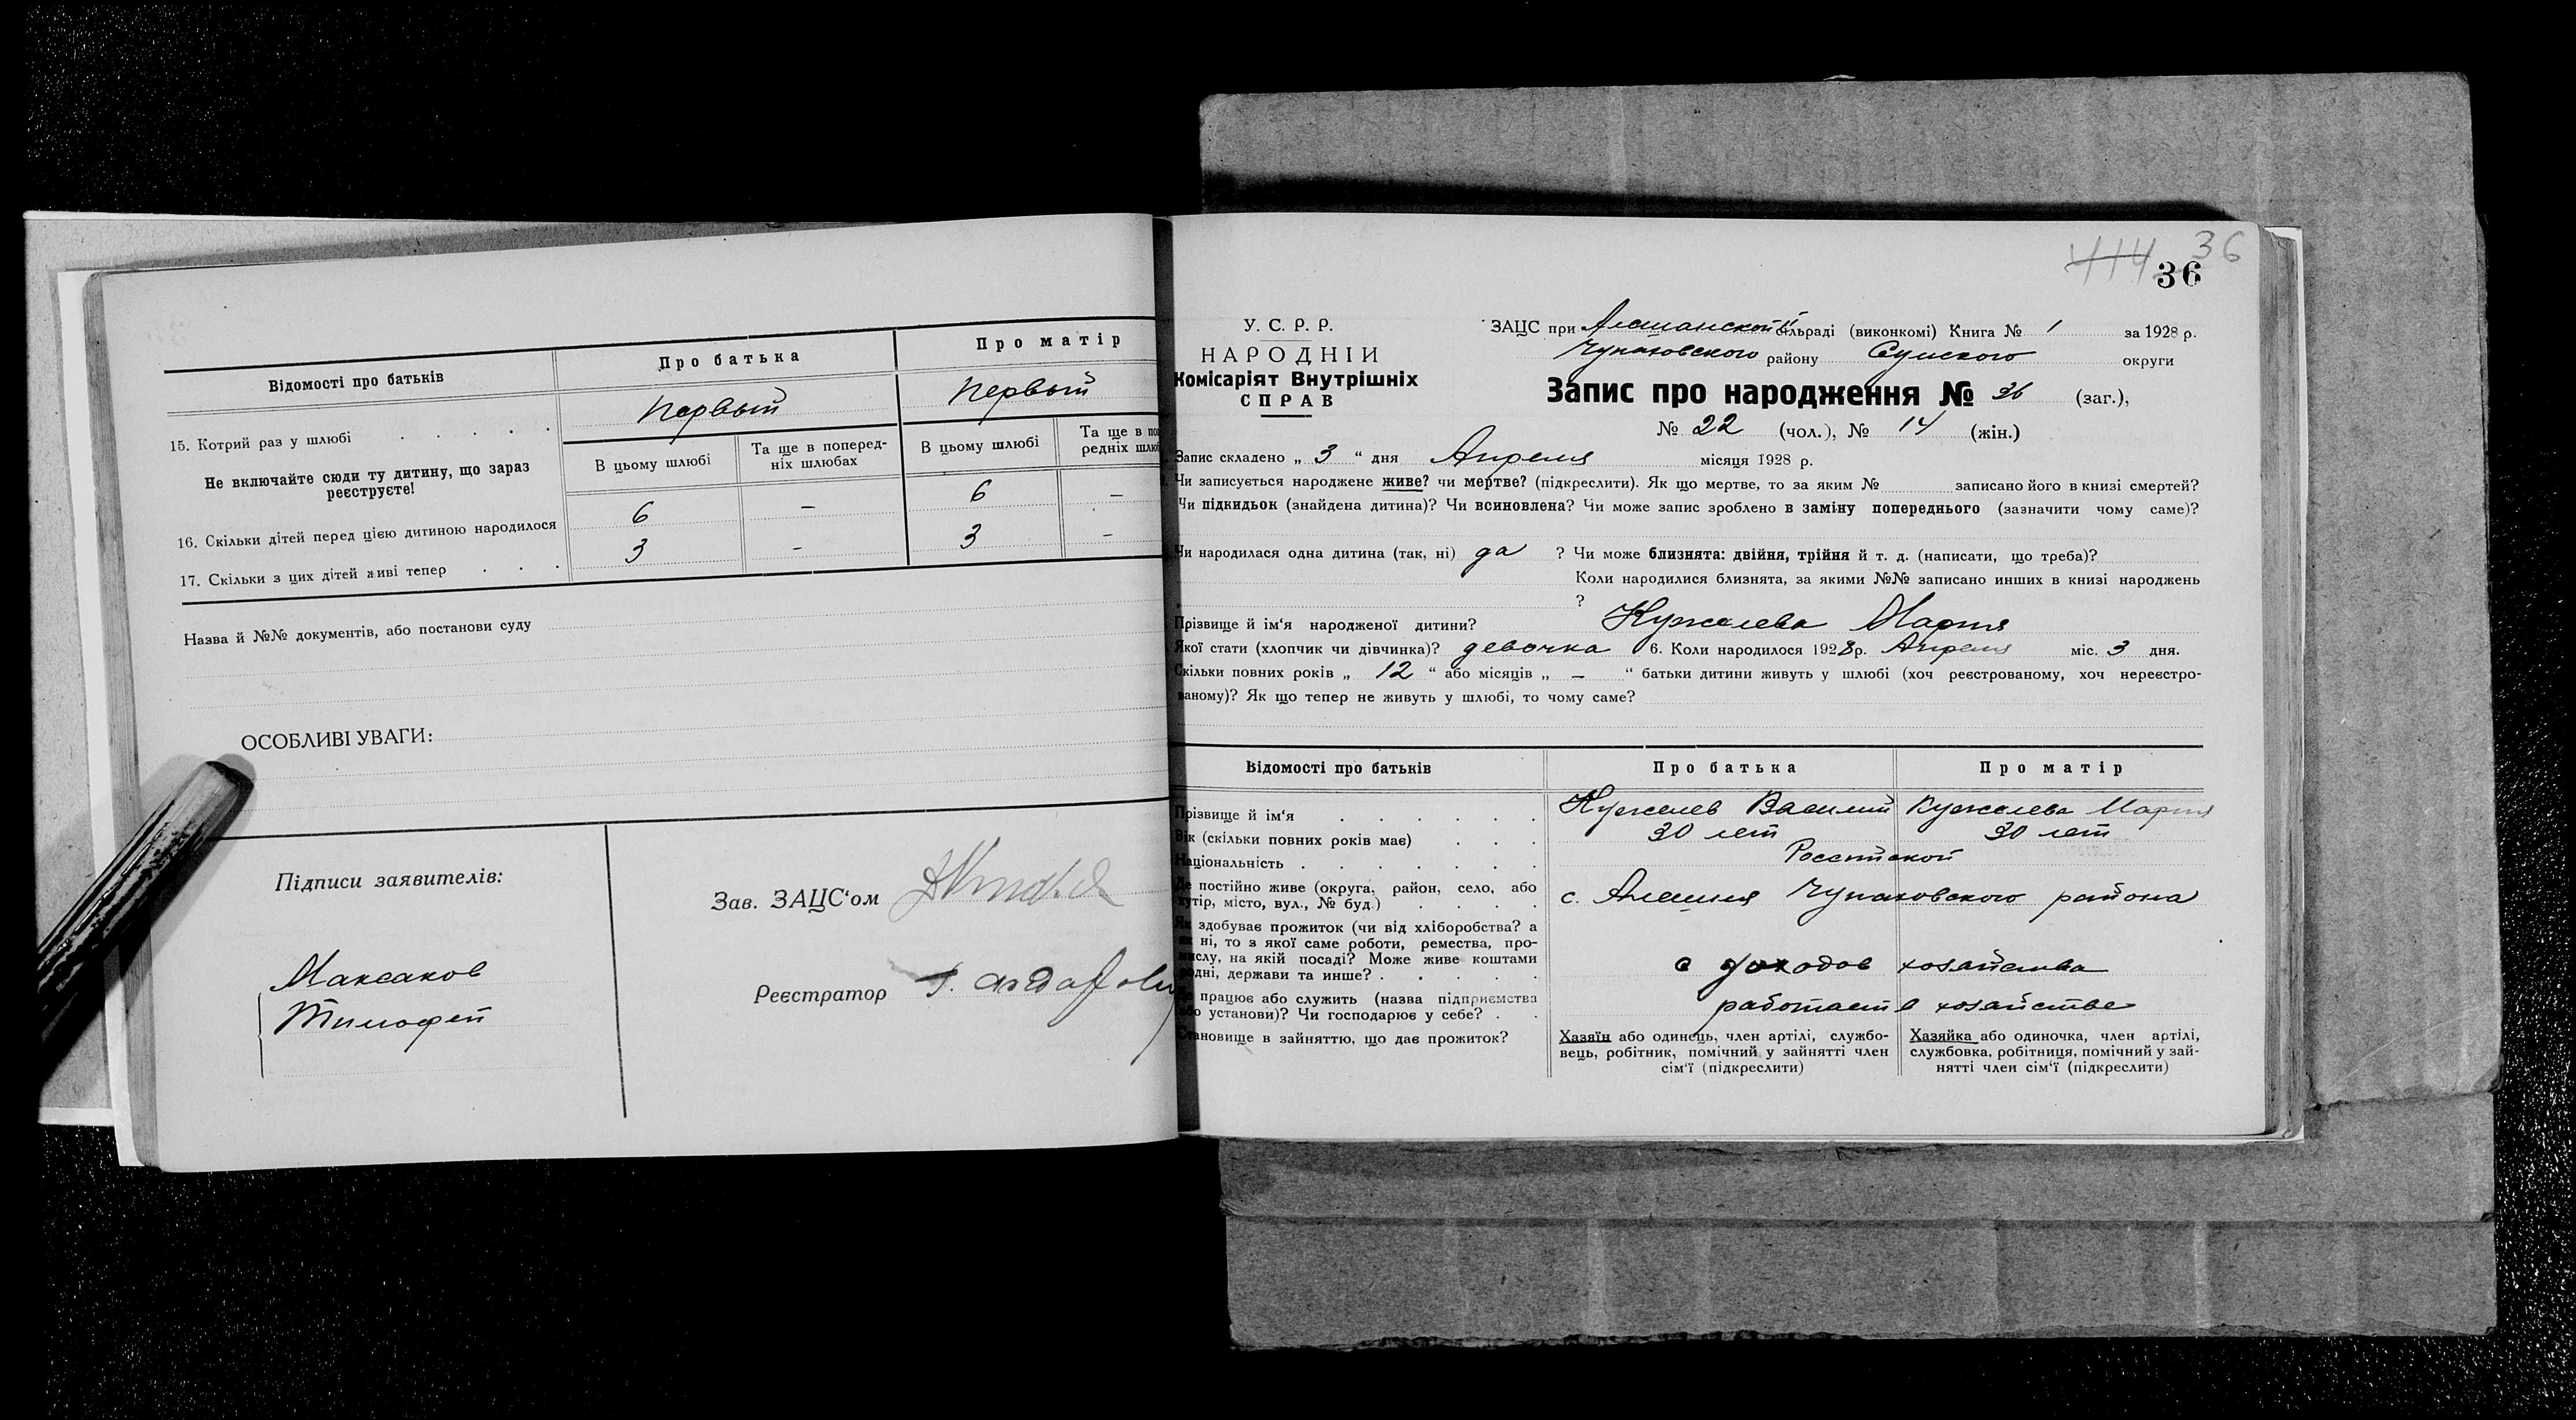 Відомості про батьків
Про батька
Про матір
15. Котрий раз у шлюбі . . . . .
Первый
Первый
Не включайте сюди ту дитину, що зараз
реєструєте!
В цьому шлюбі
Та ще в поперед-
ніх шлюбах
В цьому шлюбі
Та ще в по
редніх шлю
16. Скільки дітей перед цією дитиною народилося
6 – 6 –
17. Скільки з цих дітей живі тепер . . .
3 – 3 –
Назва й №№ документів, або постанови суду
ОСОБЛИВІ УВАГИ:
Підписи заявителів:
Максаков
Тимофей
Зав. ЗАЦС‘ом
Реєстратор
414 36
36
У. С. Р. Р.
НАРОДНІЙ
Комісаріят Внутрішніх
СПРАВ
ЗАЦС при Алешанской сільраді (виконкомі) Книга № 1 за 1928 р.
Чупаховского району Сумского округи
Запис про народження № 36 (заг.),
№ 22 (чол.), № 14 (жін.)
Запис складено „ 3 “ дня Апреля місяця 1928 р.
Чи записується народжене живе? чи мертве? (підкреслити). Як що мертве, то за яким № записано його в книзі смертей?
Чи підкидьок (знайдена дитина)? Чи всиновлена? Чи може запис зроблено в заміну попереднього (зазначити чому саме)?
Чи народилася одна дитина (так, ні) да ? Чи може близнята: двійня, трійня й т. д. (написати, що треба)?
Коли народилися близнята, за якими №№ записано инших в книзі народжень
?
Прізвище й ім‘я народженої дитини? Кужелева Мария
Якої стати (хлопчик чи дівчинка)? девочка 6. Коли народилося 1928 р. Апреля міс. 3 дня.
Скільки повних років „ 12 “ або місяців „ – “ батьки дитини живуть у шлюбі (хоч реєстрованому, хоч нереєстро-
ваному)? Як що тепер не живуть у шлюбі, то чому саме?
Відомості про батьків
Про батька
Про матір
Прізвище й ім‘я . . . . . .
Кужелев Василий
Кужелева Мария
Вік (скільки повних років має) . . .
30 лет
30 лет
Національність . . . . . . .
Российской
Де постійно живе (округа, район, село, або
хутір, місто, вул., № буд.) . . . .
с. Алешня Чупаховского района
Як здобуває прожиток (чи від хліборобства? а
як ні, то з якої саме роботи, ремества, про-
мислу, на якій посаді? Може живе коштами
родні, держави та инше? . . . . .
с доходов хозайства
Де працює або служить (назва підприємства
або установи)? Чи господарює у себе? . .
работает в хозайстве
Становище в зайняттю, що дає прожиток?
Хазяїн або одинець, член артілі, службо-
вець, робітник, помічний у зайнятті член
сім‘ї (підкреслити)
Хазяйка або одиночка, член артілі,
службовка, робітниця, помічний у зай-
нятті член сім‘ї (підкреслити)